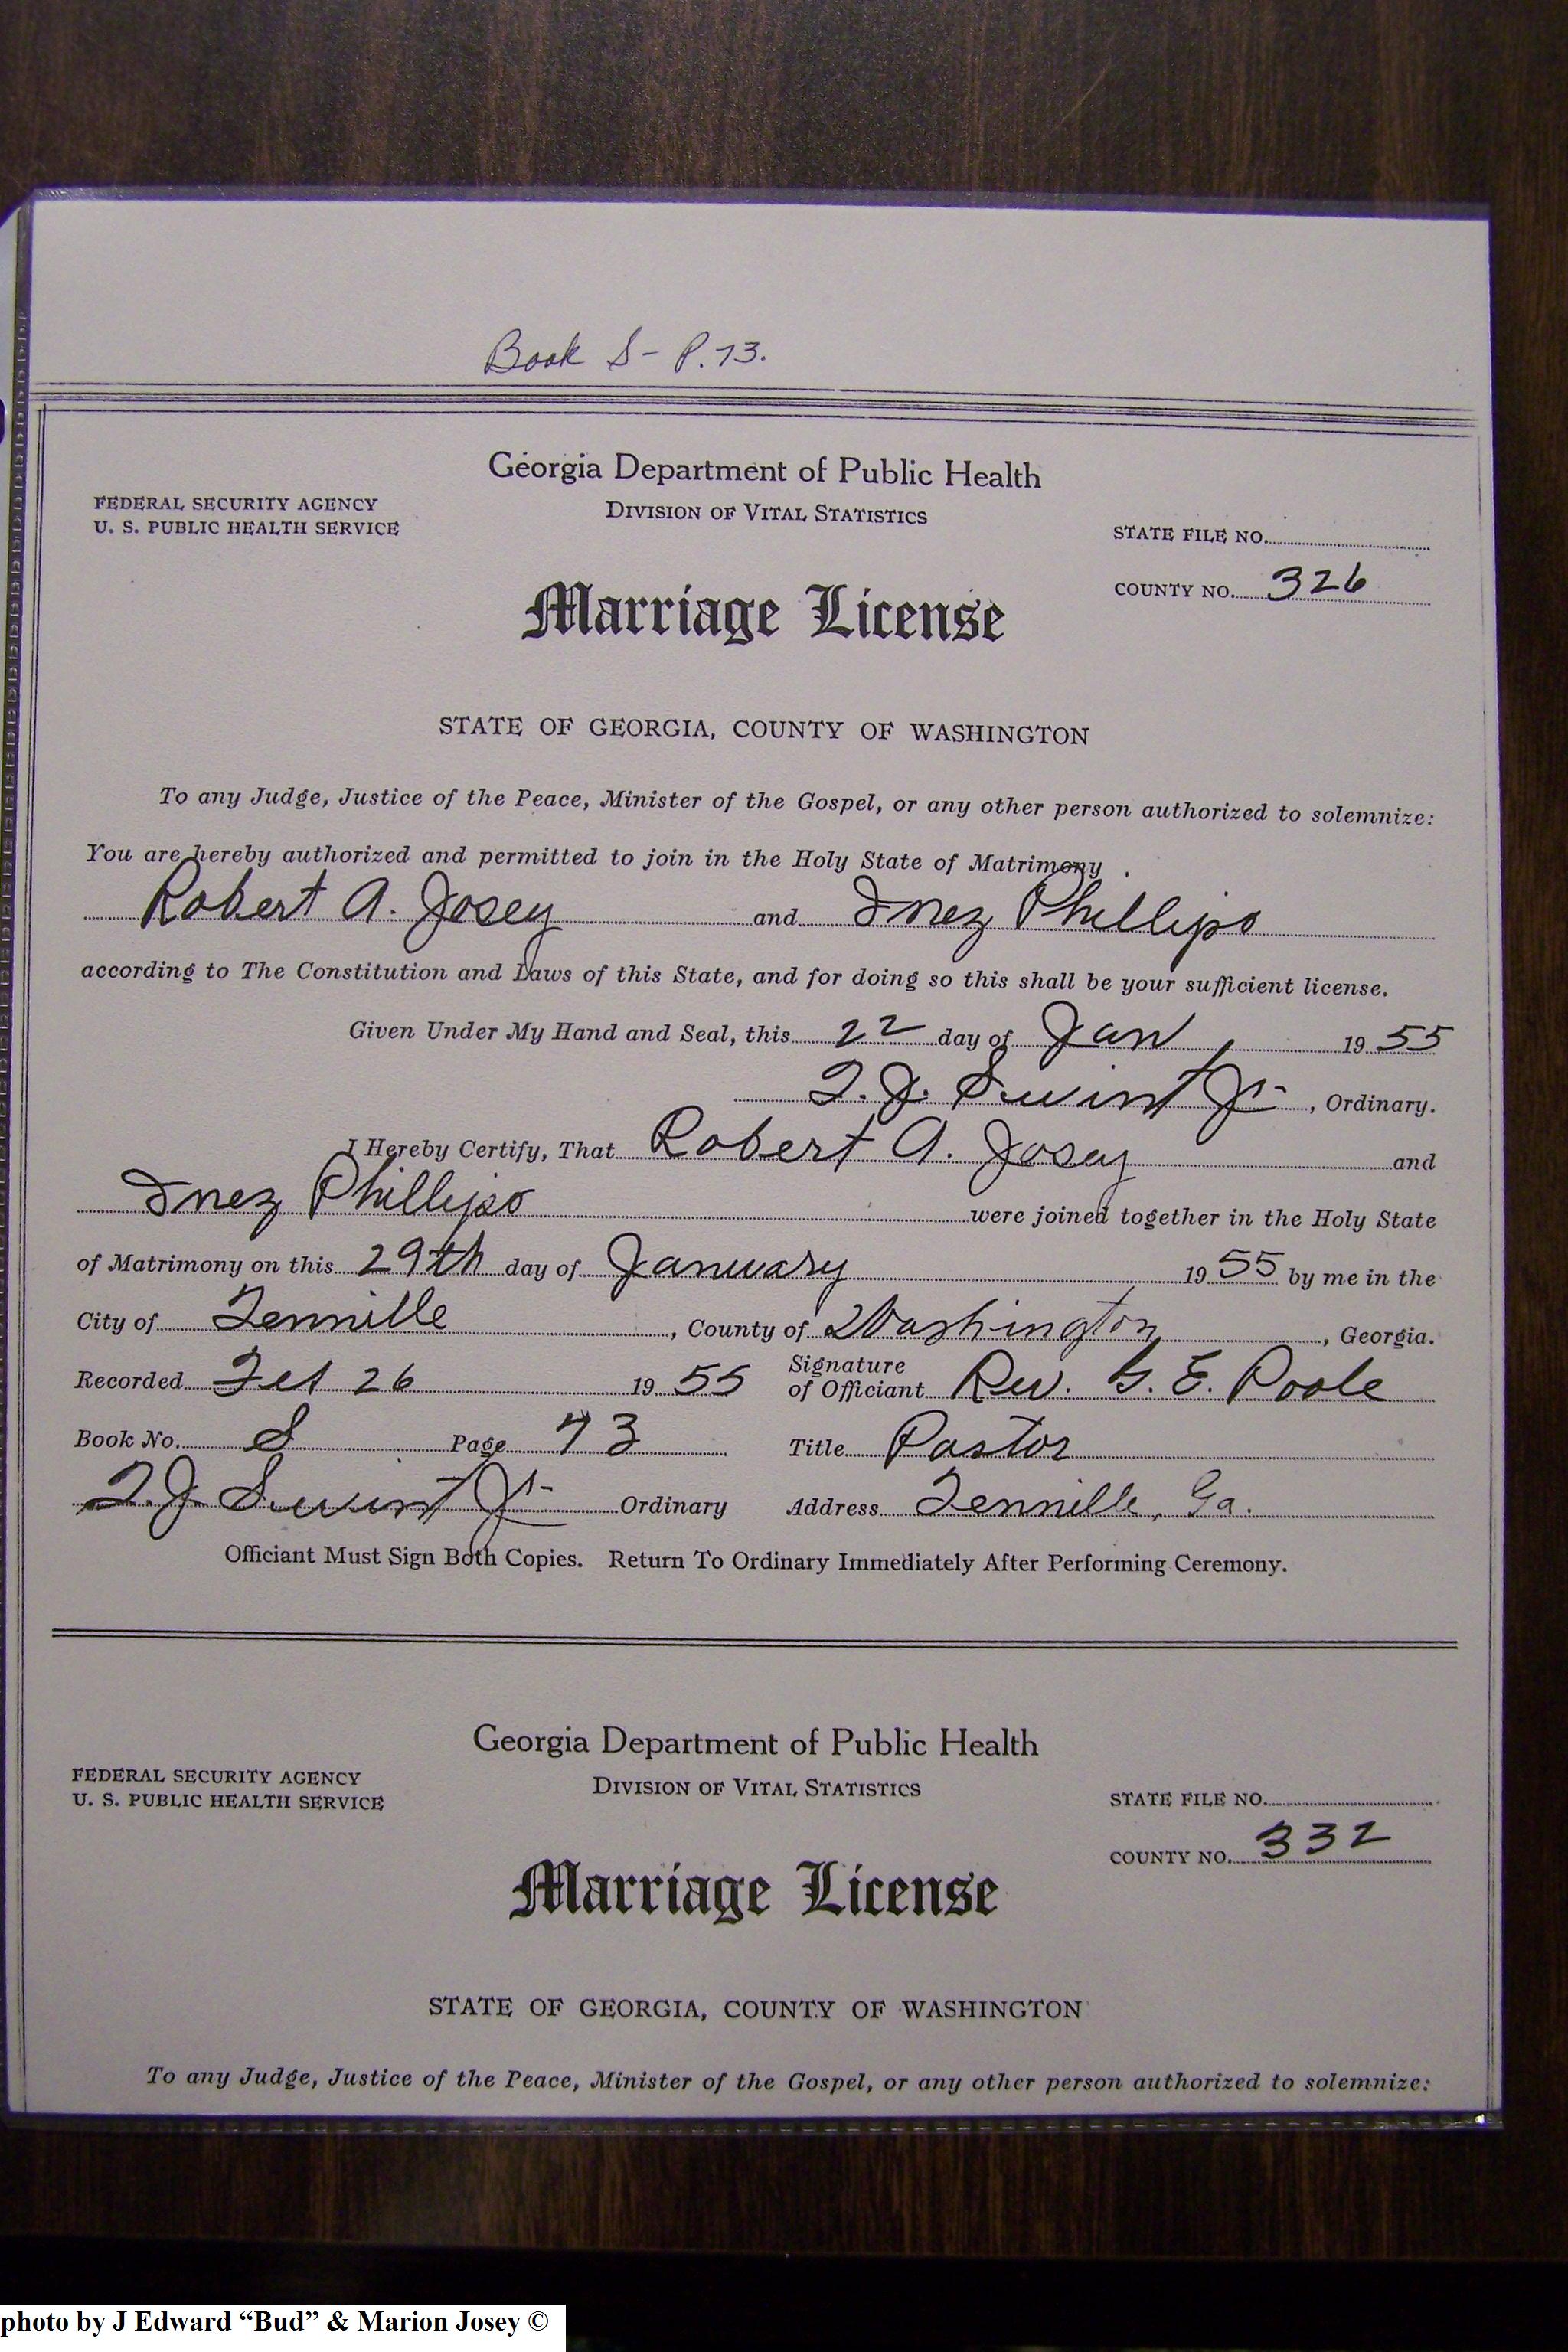 Book S - P. 73.
Georgia Department of Public Health
FEDERAL SECURITY AGENCY
U. S. PUBLIC HEALTH SERVICE
DIVISION OF VITAL STATISTICS
STATE FILE NO.
COUNTY NO. 326
Marriage License
STATE OF GEORGIA, COUNTY OF WASHINGTON
To any Judge, Justice of the Peace, Minister of the Gospel, or any other person authorized to solemnize:
You are hereby authorized and permitted to join in the Holy State of Matrimony
Robert A. Josey and Inez Phillips
according to The Constitution and Laws of this State, and for doing so this shall be your sufficient license.
Given Under My Hand and Seal, this 22 day of Jan 1955
T. J. Swint Jr, Ordinary.
I Hereby Certify, That Robert A. Josey and
Inez Phillips were joined together in the Holy State
of Matrimony on this 29th day of January 1955 by me in the
City of Tennille, County of Washington, Georgia.
Recorded Feb 26 1955 Signature of Officiant Rev. G. E. Poole
Book No. S Page 73 Title Pastor
T. J. Swint Jr Ordinary Address Tennille, Ga.
Officiant Must Sign Both Copies. Return To Ordinary Immediately After Performing Ceremony.
Georgia Department of Public Health
FEDERAL SECURITY AGENCY
U. S. PUBLIC HEALTH SERVICE
DIVISION OF VITAL STATISTICS
STATE FILE NO.
COUNTY NO. 332
Marriage License
STATE OF GEORGIA, COUNTY OF WASHINGTON
To any Judge, Justice of the Peace, Minister of the Gospel, or any other person authorized to solemnize:
photo by J Edward “Bud” & Marion Josey ©